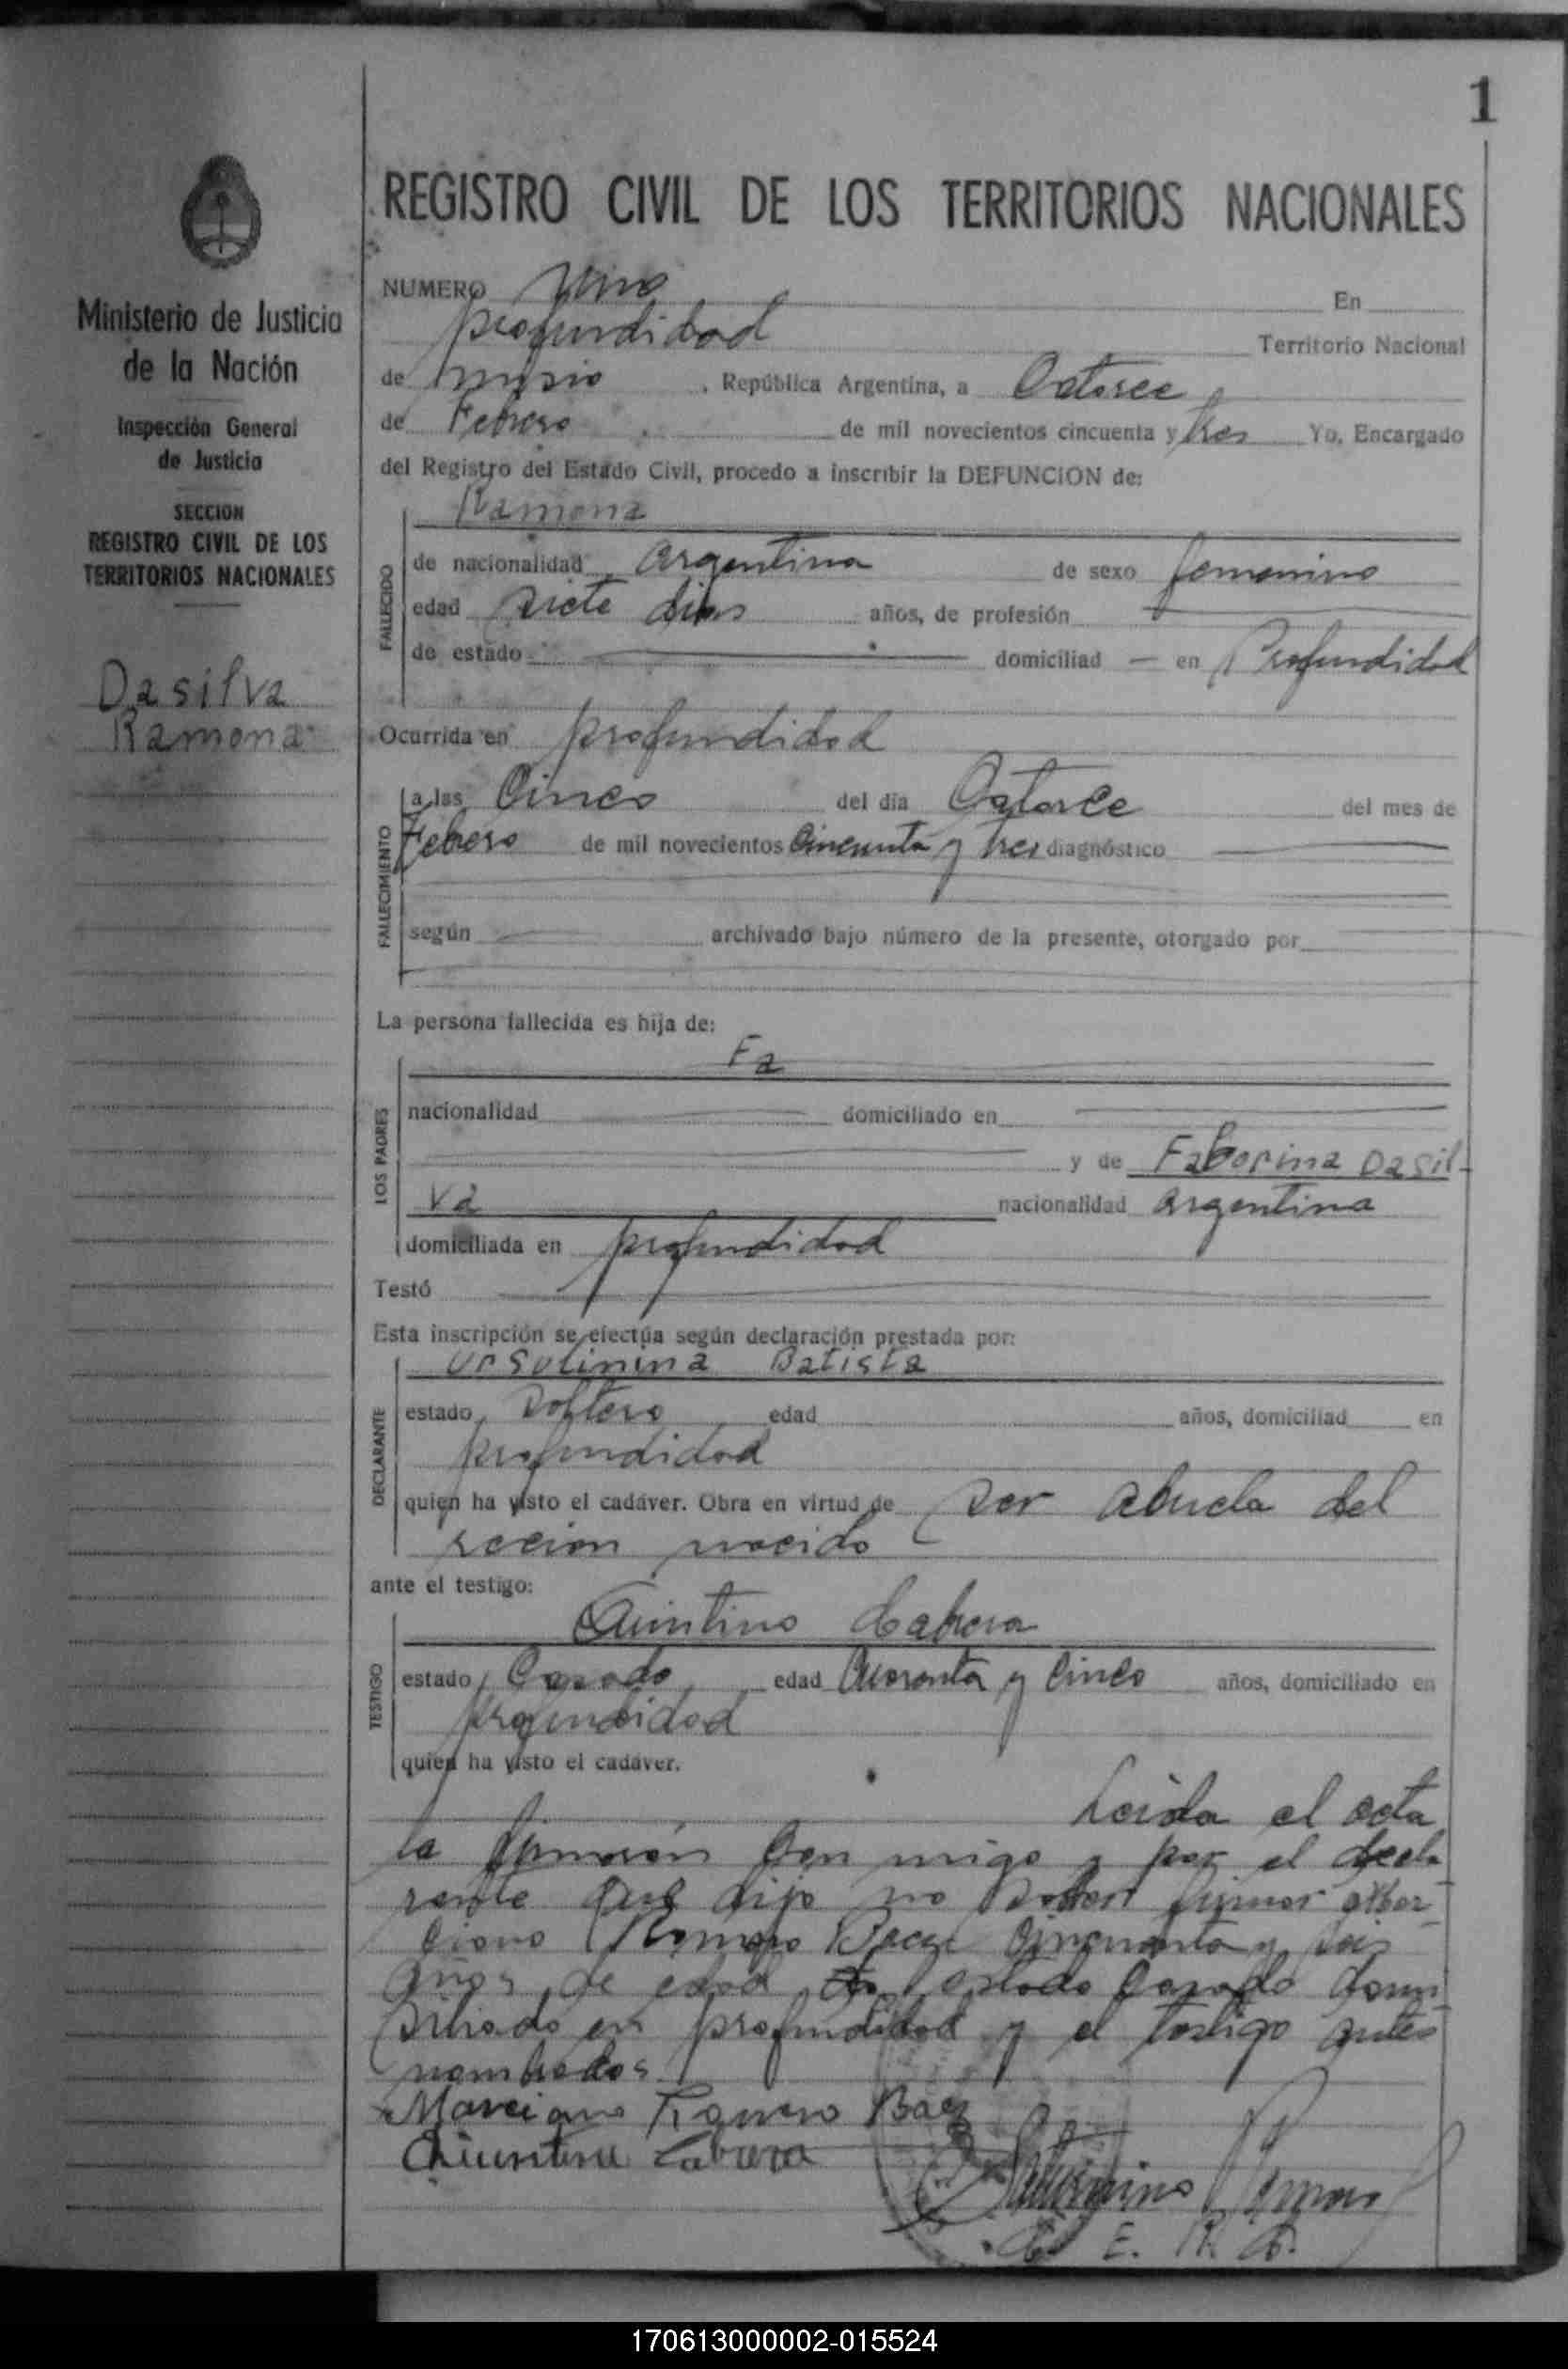 1
REGISTRO CIVIL DE LOS TERRITORIOS NACIONALES
Ministerio de Justicia
de la Nación
Inspección General
de Justicia
SECCION
REGISTRO CIVIL DE LOS
TERRITORIOS NACIONALES
Dasilva
Ramona
NUMERO uno En
profundidad Territorio Nacional
de República Argentina, a Catorce
de Febrero de mil novecientos cincuenta y tres Yo, Encargado
del Registro del Estado Civil, procedo a inscribir la DEFUNCION de:
Ramona
FALLECIDO
de nacionalidad argentina de sexo femenino
edad siete dias años, de profesión
de estado domiciliad en Profundidad
Ocurrida en profundidad
FALLECIMIENTO
a las Cinco del día Catorce del mes de
Febrero de mil novecientos Cincuenta y tres diagnóstico
según archivado bajo número de la presente, otorgado por
La persona fallecida es hija de:
LOS PADRES
Fa
nacionalidad domiciliado en
y de Faborina Dasil-
va nacionalidad argentina
domiciliada en profundidad
Testó
Esta inscripción se efectúa según declaración prestada por:
DECLARANTE
Ursulinina Batista
estado soltera edad años, domiciliad en
profundidad
quien ha visto el cadáver. Obra en virtud de ser abuela del
recien nacido
ante el testigo:
TESTIGO
Quintino Cabrera
estado Casado edad Cuarenta y Cinco años, domiciliado en
profundidad
quien ha visto el cadáver.
Leida el acta
la firmaron con migo y por el decla
rante que dijo no saber firmar
Romero Baez Cincuenta y seis
años de edad estado Casado domi
siliado en profundidad y el testigo antes
nombrados
Marciano Romero Baez
Quintino Cabrera
Saturnino Romero
E. R. C.
170613000002-015524